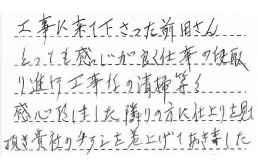 工事に来て下さった前田さん
とっても感じが良く仕事の段取
り進行工事后の清掃等々
感心致しました隣りの方に仕上りを見て
頂き貴社のチラシを差上げておきました